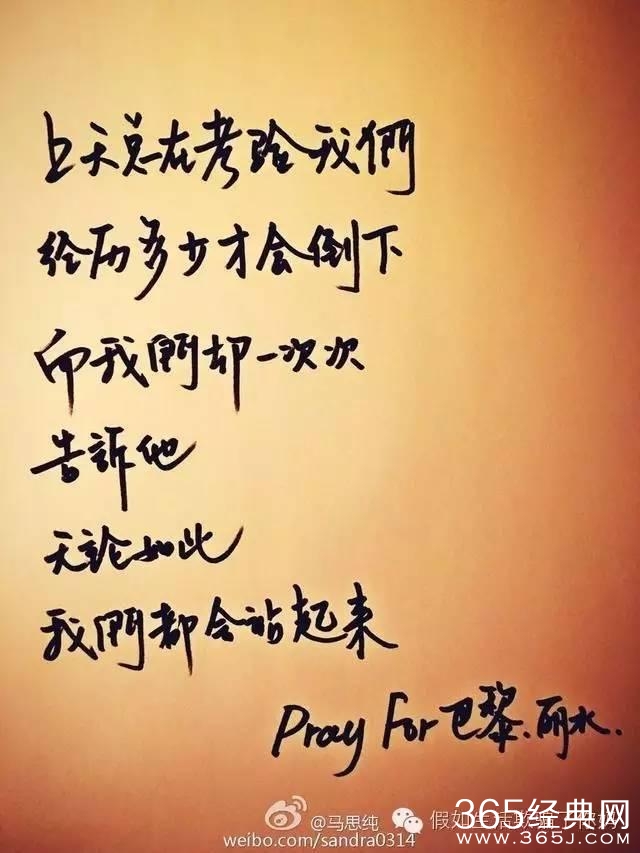 上天总在考验我們
经历多少才会倒下
而我們却一次次
告訴他
无論如此
我們都会站起来
Pray For 巴黎.丽水.
@马思纯
假如生
weibo.com/sandra0314
365经典网
WWW.365J.COM